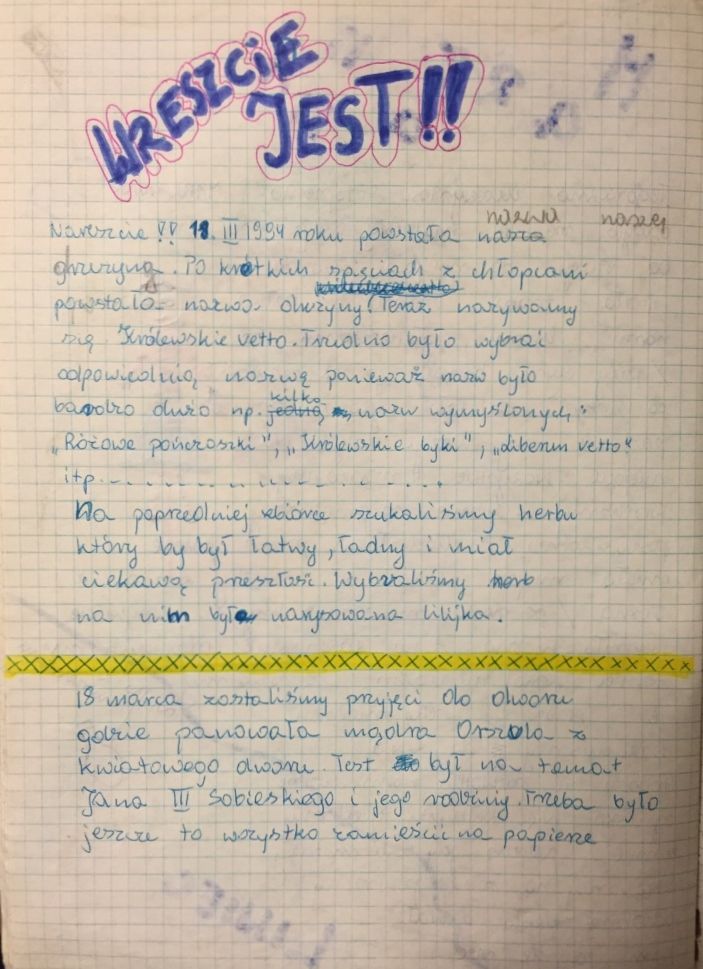 WRESZCIE
JEST!!
nazwa naszej
Nareszcie!! 18. III 1994 roku powstała nasza
drużyna. Po krótkich spięciach z chłopcami
powstała nazwa drużyny. Teraz nazywamy
się Królewskie vetto. Trudno było wybrać
odpowiednią nazwę ponieważ nazw było
bardzo dużo np. jedną kilka nazw wymyślonych:
"Różowe pończoszki", "Królewskie byki", "liberum vetto"
itp.....................
Na poprzedniej zbiórce szukaliśmy herbu
który by był łatwy, ładny i miał
ciekawą przeszłość. Wybraliśmy herb
na nim była narysowana lilijka.
18 marca zostaliśmy przyjęci do dworu
gdzie panowała mądra Orszula z
kwiatowego dworu. Test był na temat
Jana III Sobieskiego i jego rodziny. Trzeba było
jeszcze to wszystko zamieścić na papierze